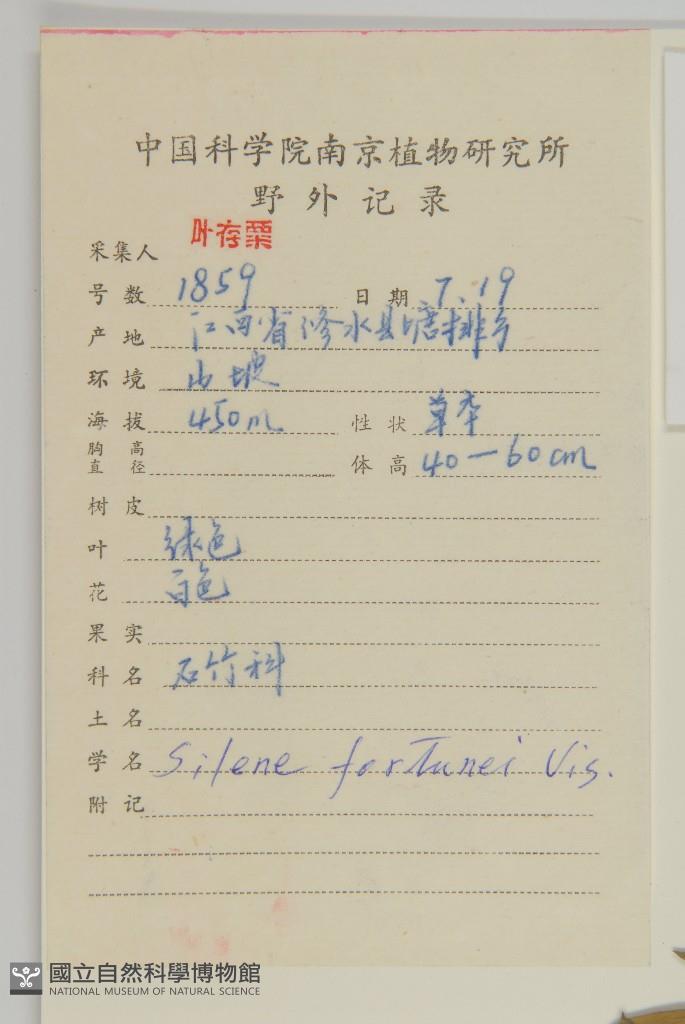 中国科学院南京植物研究所
野外记录
采集人 叶存粟
号数 1859 日期 7.19
产地 江西省修水县塘排乡
环境 山坡
海拔 450m 性状 草本
胸高直径 体高 40-60cm
树皮
叶 绿色
花 白色
果实
科名 石竹科
土名
学名 Silene fortunei Vis.
附记
國立自然科學博物館
NATIONAL MUSEUM OF NATURAL SCIENCE